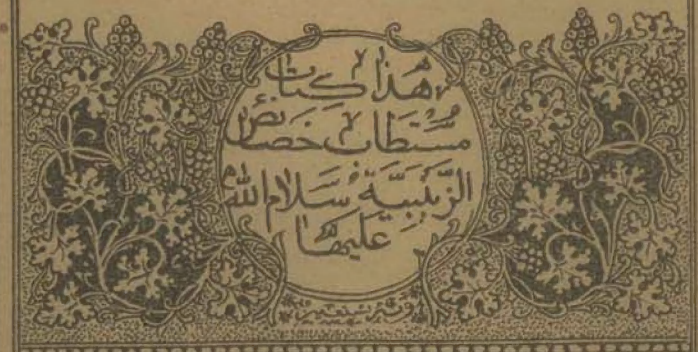 هذا كتاب
مستطاب خصائص
الزينبية سلام الله
عليها